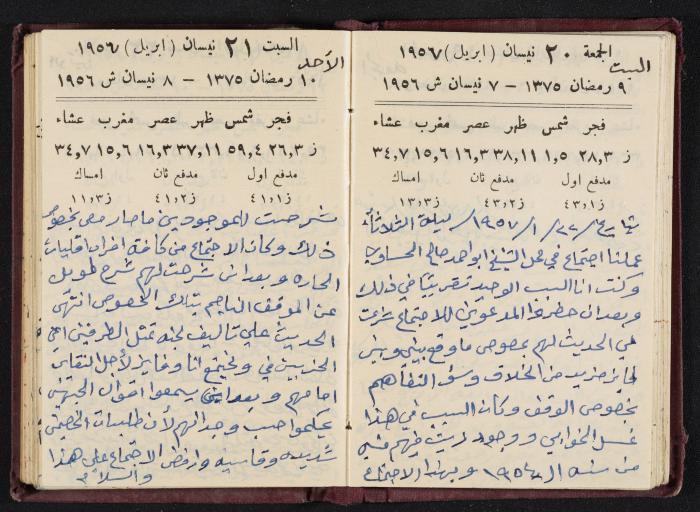 الجمعة ٢٠ نيسان (ابريل) ١٩٥٦٧
السبت
٩ رمضان ١٣٧٥ – ٧ نيسان ش ١٩٥٦
فجر شمس ظهر عصر مغرب عشاء
ز ٢٨,٣ ١,٥ ٣٨,١١ ١٦,٣ ١٥,٦ ٣٤,٧
مدفع اول مدفع ثان امساك
ز ٤٣,١ ز ٤٣,٢ ز ١٣,٣
بتاريخ ٢٢/١/١٩٥٧ ليلة الثلاثاء
عملنا اجتماع في محل الشيخ ابو احمد صالح الحساوي
وكنت انا السبب الوحيد تقريبًا في ذلك
وبعد ان حضروا المدعوين للاجتماع شرعت
في الحديث لهم بخصوص ما وقع بيني وبين
فايز مزيد من الخلاف وسؤ التفاهم
بخصوص الوقف وكان السبب في هذا
غسل الخوابي ووجود زيت فيهم
من سنه ال ١٩٥٤ وبهذا الاجتماع
السبت ٢١ نيسان (ابريل) ١٩٥٦٧
الأحد
١٠ رمضان ١٣٧٥ – ٨ نيسان ش ١٩٥٦
فجر شمس ظهر عصر مغرب عشاء
ز ٢٦,٣ ٥٩,٤ ٣٧,١١ ١٦,٣ ١٥,٦ ٣٤,٧
مدفع اول مدفع ثان امساك
ز ٤١,١ ز ٤١,٢ ز ١١,٣
شرحت للموجودين ما صار معي بخصوص
ذلك وكان الاجتماع من كافة افراد اقليات
الحاره وبعد ان شرحت لهم شرح طويل
عن الموقف الناجم بتلك الخصوص انتهى
الحديث على تأليف لجنه تمثل الطرفين اي
الحزبين في ونجتمع انا وفايز لأجل النقاش
امامهم وبعد ان يسمعوا اقوال الجهتين
يحكموا حسب وجدانهم لأن طلبات الخصم
شديده وقاسيه وارفض الاجتماع على هذا
والسلام